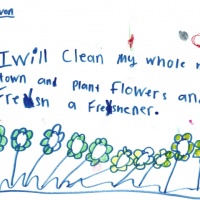 I Will Clean my whole
town and Plant Flowers an
Fresh a Freshener.